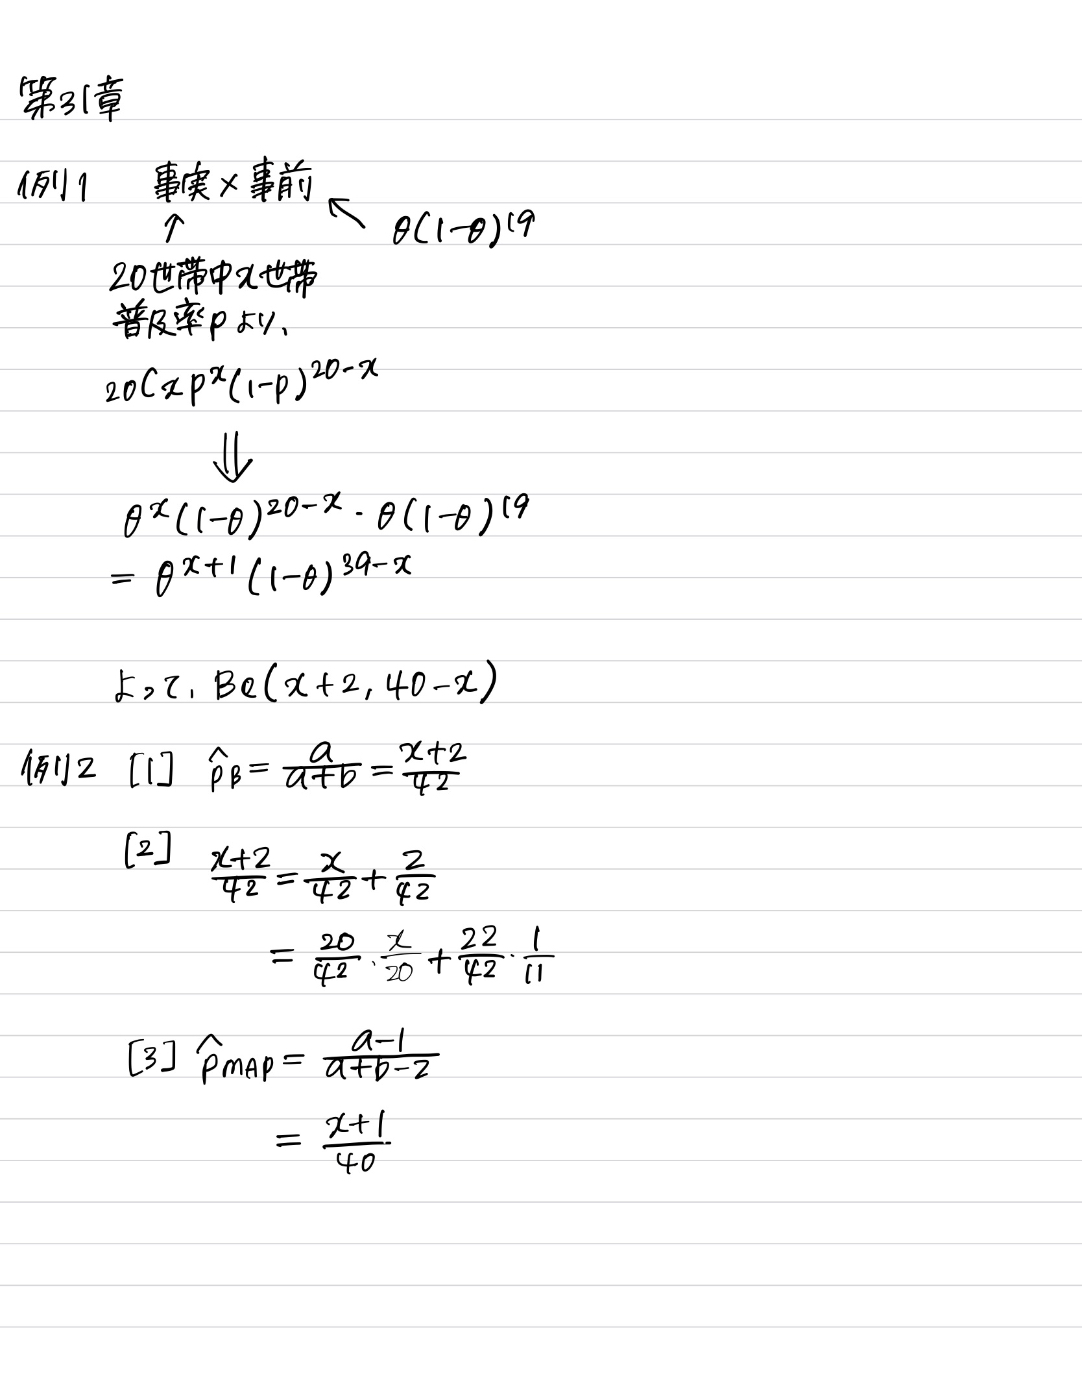 第31章
例1 事実×事前
↑ ↖ θ(1-θ)^19
20世帯中x世帯
普及率pより、
₂₀Cₓ p^x(1-p)^{20-x}
⇓
θ^x(1-θ)^{20-x}・θ(1-θ)^19
= θ^{x+1}(1-θ)^{39-x}
よって、Be(x+2, 40-x)
例2 [1] p̂_B = a/(a+b) = (x+2)/42
[2] (x+2)/42 = x/42 + 2/42
= 20/42・x/20 + 22/42・1/11
[3] p̂_MAP = (a-1)/(a+b-2)
= (x+1)/40